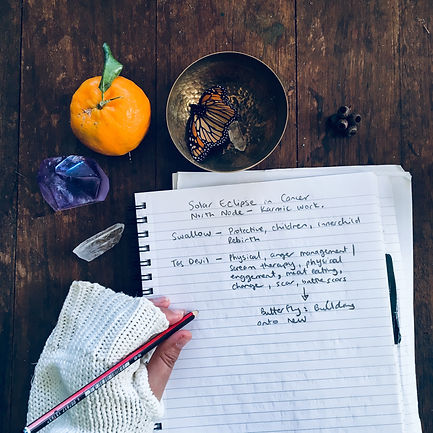 Solar Eclipse in Cancer
North Node - Karmic work.
Swallow - Protective, children, innerchild
Rebirth
Tas Devil - Physical, anger management /
scream therapy, physical
enggement, meat eating,
change, scar, battle scars
Butterfly: Building
onto New